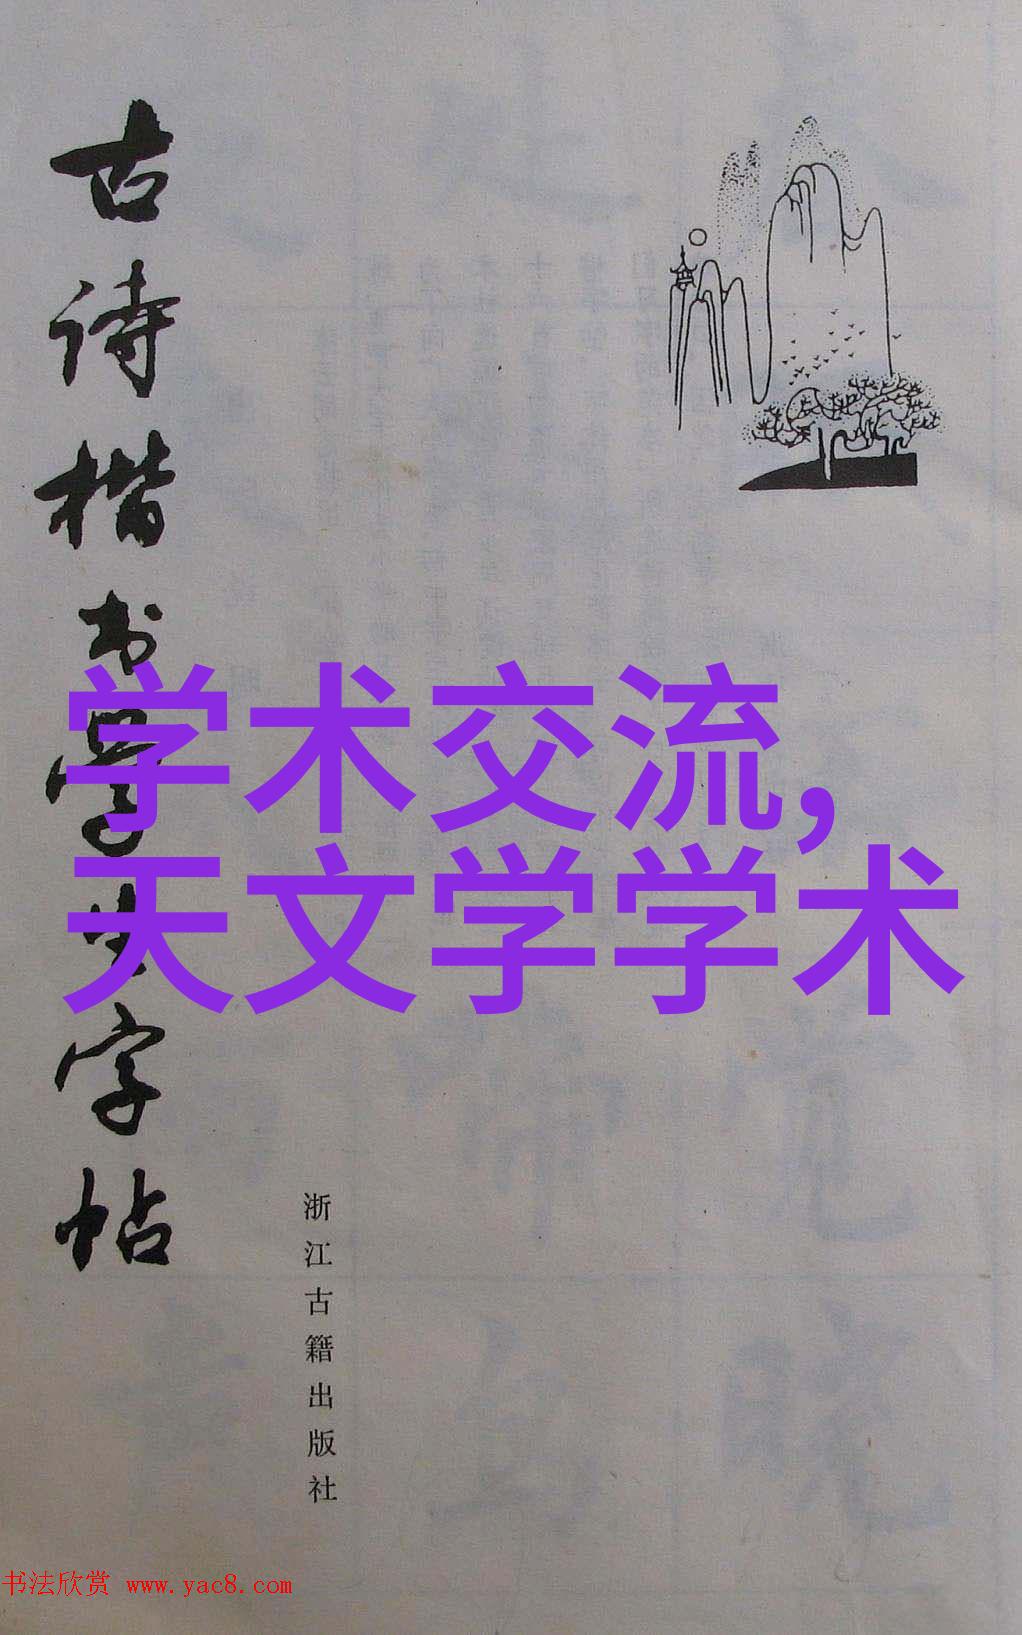 古诗楷书学生字帖
学术交流,
天文学学术
浙江古籍出版社
书法欣赏 www.yac8.com